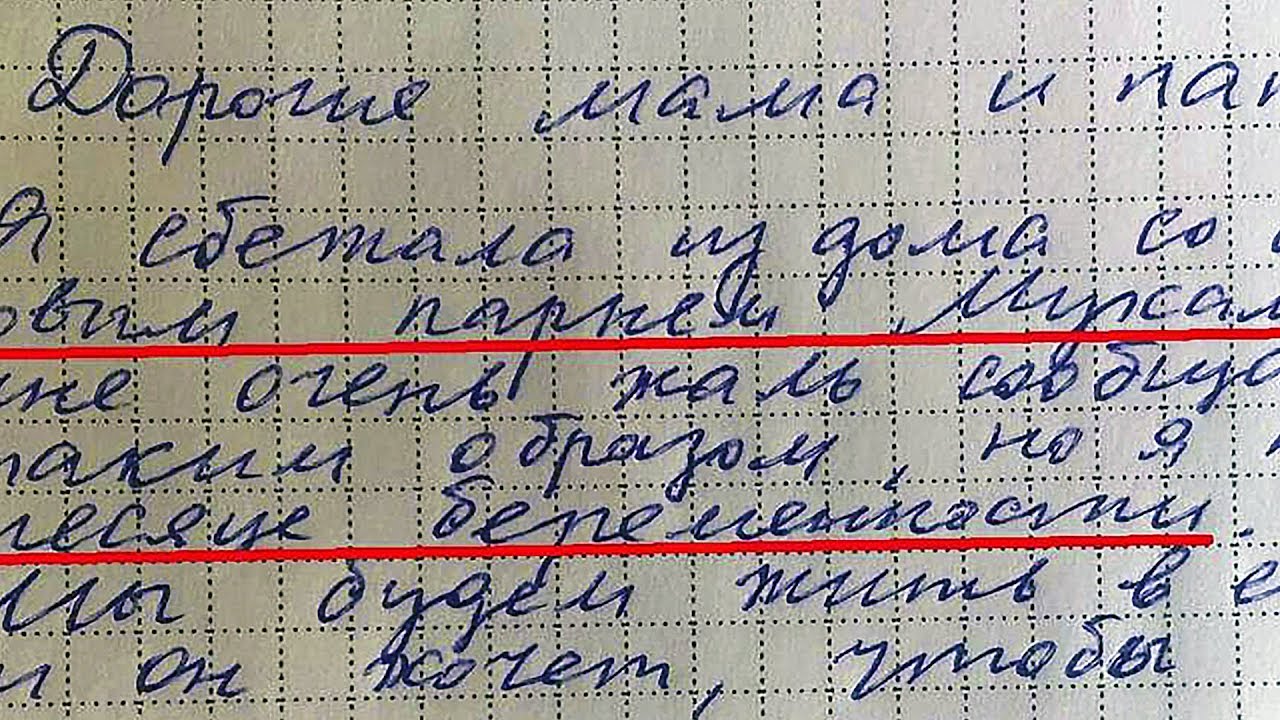 Дорогие мама и пап
Я сбежала из дома со с
овым парнем Мухам
мне очень жаль сообщ
таким образом, но я н
месяце беременности.
Мы будем жить в е
и он хочет, чтобы